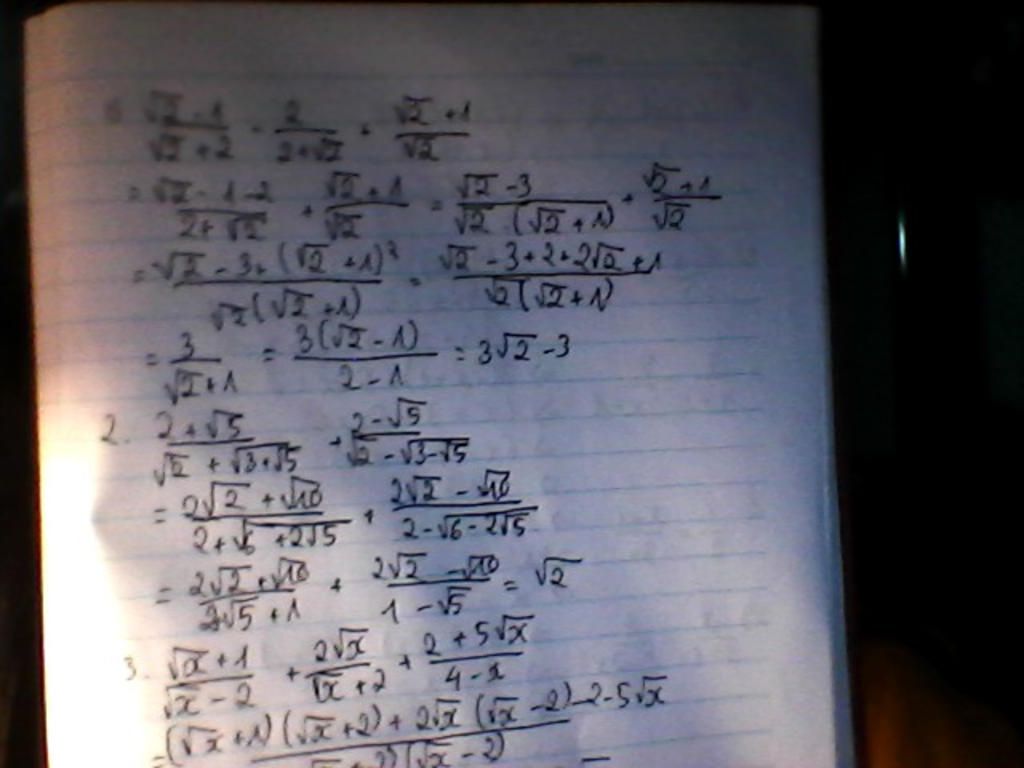 (√2 - 1)/(√2 + 2) - 2/(2+√2) + (√2 + 1)/√2
= (√2 - 1 - 2)/(2 + √2) + (√2 + 1)/√2 = (√2 - 3)/(√2 (√2 + 1)) + (√2 + 1)/√2
= (√2 - 3 + (√2 + 1)²)/(√2 (√2 + 1)) = (√2 - 3 + 2 + 2√2 + 1)/(√2 (√2 + 1))
= 3/(√2 + 1) = 3(√2 - 1)/(2 - 1) = 3√2 - 3
2. (2 + √5)/(√2 + √(3+√5)) + (2 - √5)/(√2 - √(3-√5))
= (2√2 + √10)/(2 + √(6 + 2√5)) + (2√2 - √10)/(2 - √(6 - 2√5))
= (2√2 + √10)/(√5 + 1) + (2√2 - √10)/(1 - √5) = √2
3. (√x + 1)/(√x - 2) + 2√x/(√x + 2) + (2 + 5√x)/(4 - x)
= ((√x + 1)(√x + 2) + 2√x (√x - 2) - 2 - 5√x)/( (√x - 2)